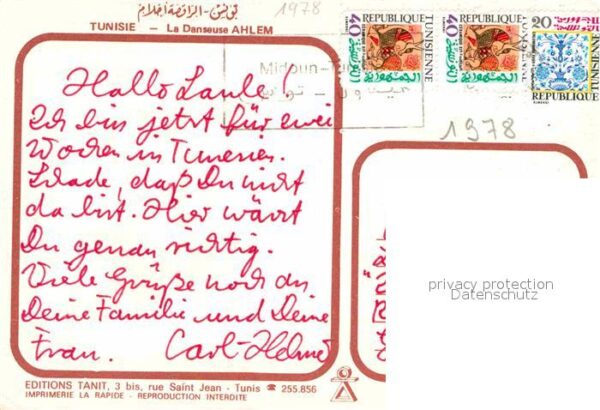 تونس - الراقصة أحلام
1978
TUNISIE — La Danseuse AHLEM
40 REPUBLIQUE TUNISIENNE
40 REPUBLIQUE TUNISIENNE
20 REPUBLIQUE TUNISIENNE
Midoun-Tu
ميدون - تونس
1978
Hallo
Ich bin jetzt für zwei
Wochen in Tunesien.
Schade, daß Du nicht
da bist. Hier wärst
Du genau richtig.
Viele Grüße noch an
Deine Familie und Deine
Frau. Carl-Helmut
privacy protection
Datenschutz
EDITIONS TANIT, 3 bis, rue Saint Jean - Tunis ☎ 255.856
IMPRIMERIE LA RAPIDE - REPRODUCTION INTERDITE